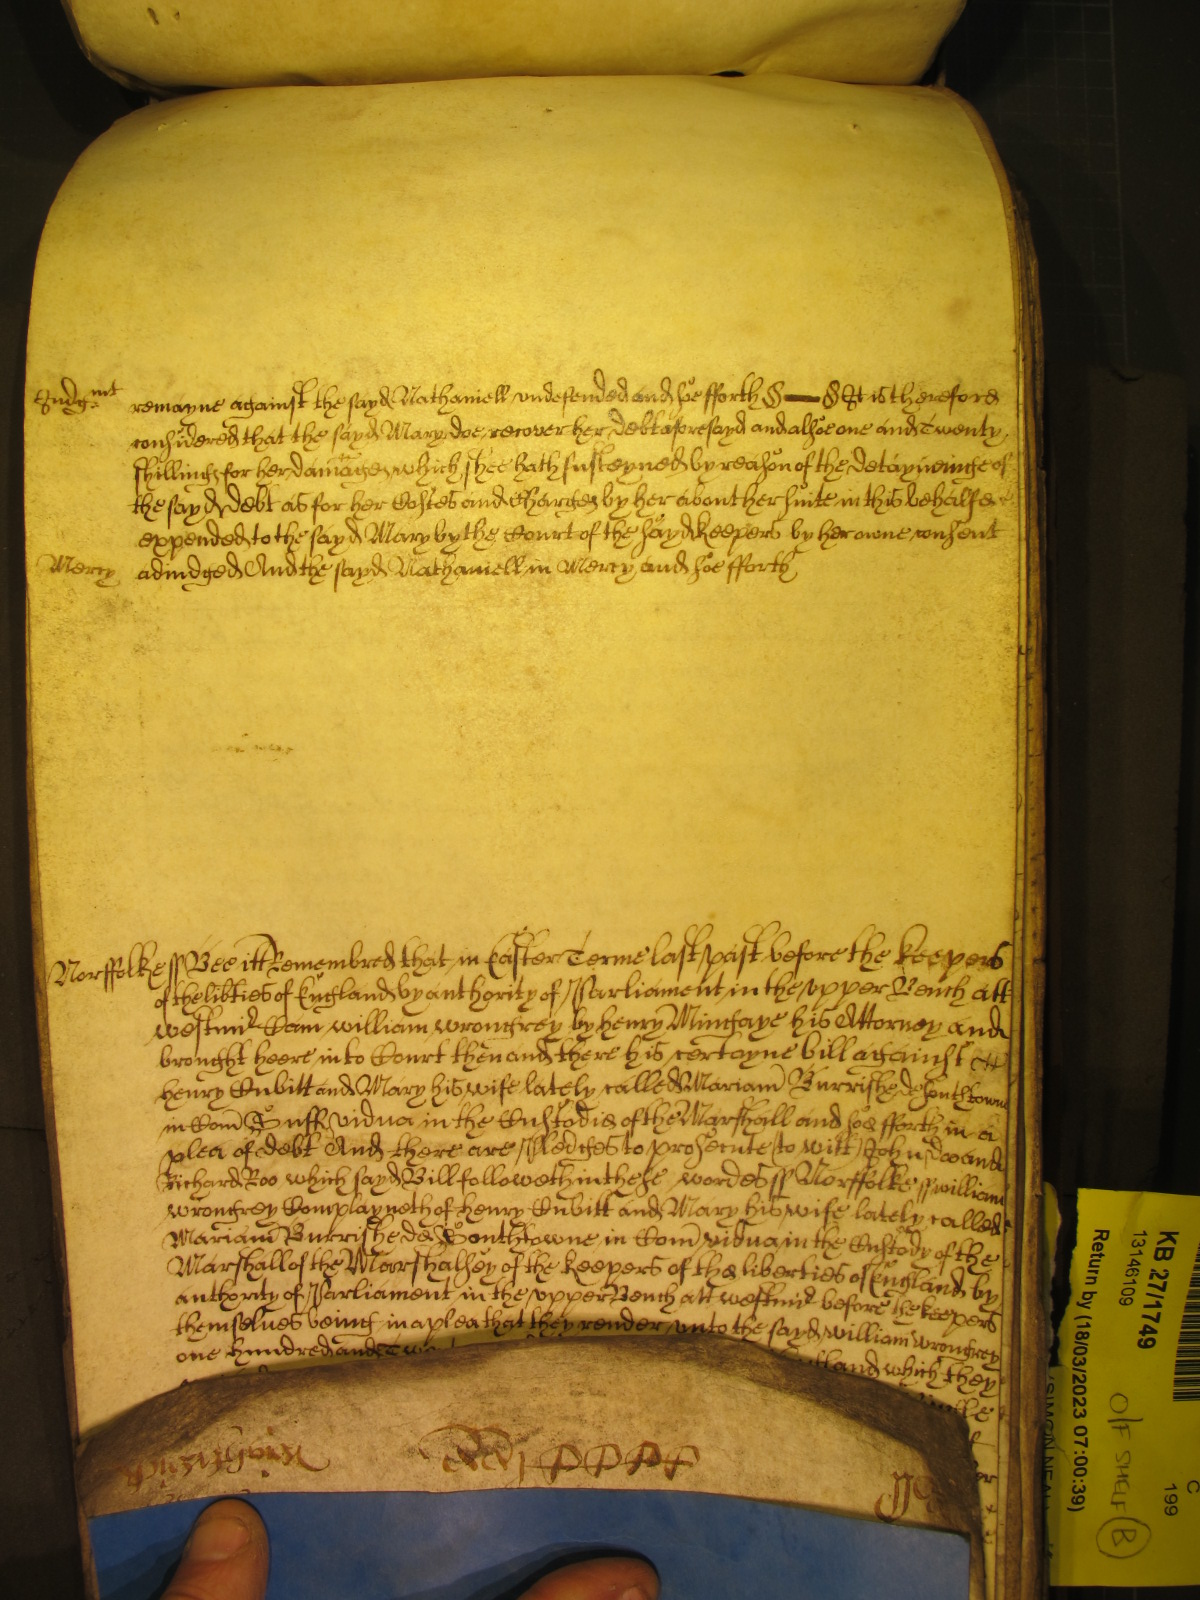 Judgmt remayne against the sayd Nathaniell undefended and soe fforth § — § It is therefore
considered that the sayd Mary doe recover her debt aforesayd and alsoe one and Twenty
shillings for her damages which shee hath susteyned by reason of the detayneinge of
the sayd debt as for her Costes and Charges by her about her suite in this behalfe
expended to the sayd Mary by the Court of the sayd keepers by her owne consent
Mercy adiudged And the sayd Nathaniell in Mercy and soe fforth
Norffolke ss Bee itt Remembred that in Easter Terme last past before the keepers
of the libties of England by authority of Parliament in the upper Bench att
westmr Cam william wrongrey by henry Mingaye his Attorney and
brought heere into Court then and there his certayne bill against
henry Cubitt and Mary his wife lately called Mariam Burrishe de Southtowne
in Com Suff vidua in the Custodie of the Marshall and soe fforth in a
plea of debt And there are Pledges to prosecute to witt John Doo and
Richard Roo which sayd Bill followeth in these wordes ss Norffolke ss william
wrongrey Complayneth of henry Cubitt and Mary his wife lately called
Mariam Burrishe de Southtowne in Com vidua in the Custody of the
Marshall of the Marshalsey of the keepers of the liberties of England by
authority of Parliament in the upper Bench att westmr before the keepers
themselves being in a plea that they render unto the sayd william wrongrey
one hundred and
which they
KB 27/1749
13146109
Return by (18/03/2023 07:00:39)
C
199
O/F SHELF (B)